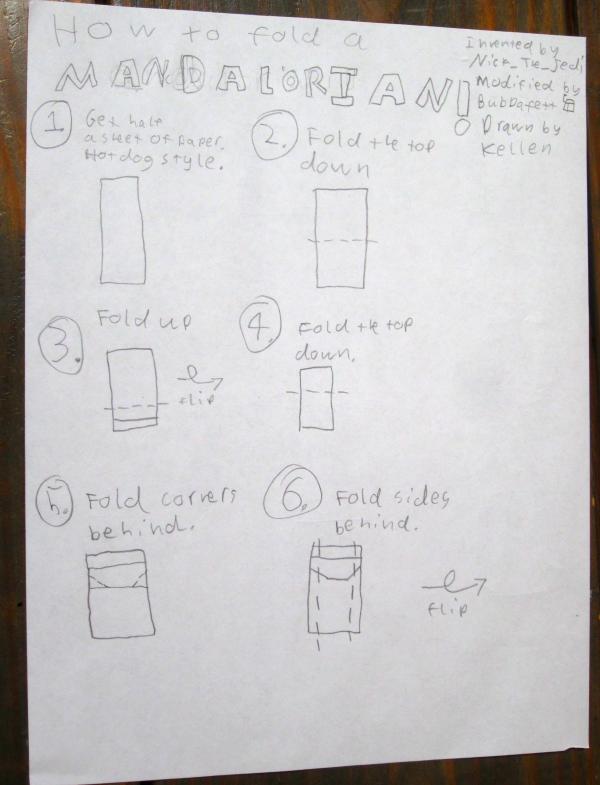 How to fold a
MANDALORIAN!
Invented by
Nick_The_Jedi
Modified by
BubDafett
Drawn by
Kellen
1.
Get half
a sheet of paper.
Hotdog style.
2.
Fold the top
down
3.
Fold up
flip
4.
Fold the top
down.
5.
Fold corners
behind.
6.
Fold sides
behind.
flip